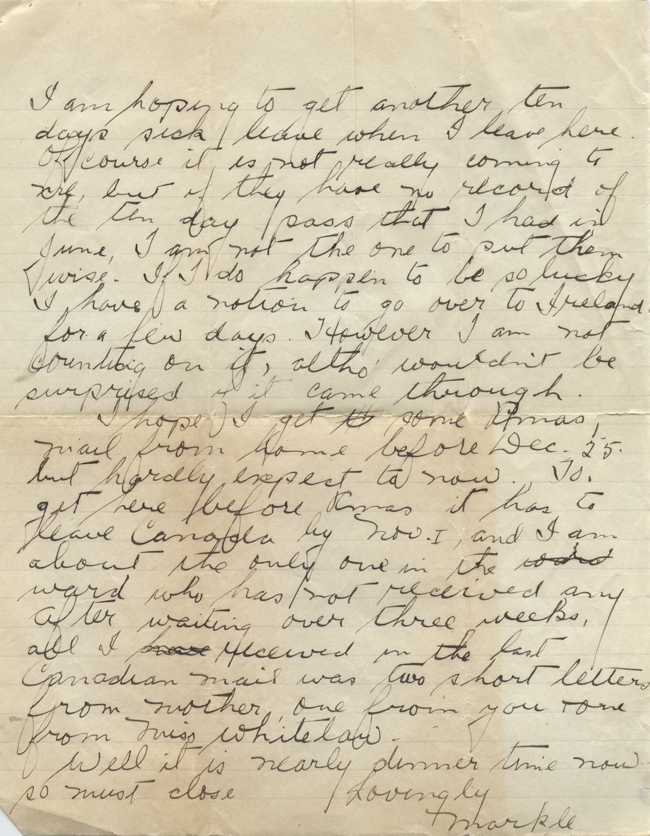 I am hoping to get another ten
days sick leave when I leave here.
Of course it is not really coming to
me, but if they have no record of
the ten day pass that I had in
June, I am not the one to put them
wise. If I do happen to be so lucky
I have a notion to go over to Ireland
for a few days. However I am not
counting on it, altho' wouldn't be
surprised if it came through.
I hope I get some Xmas,
mail from home before Dec. 25.
but hardly expect to now. To
get here before Xmas it has to
leave Canada by Nov. I, and I am
about the only one in the
ward who has not received any
after waiting over three weeks,
all I have received in the last
Canadian mail was two short letters
from mother, one from you + one
from Miss Whitelaw.
Well it is nearly dinner time now
so must close Lovingly
Markle